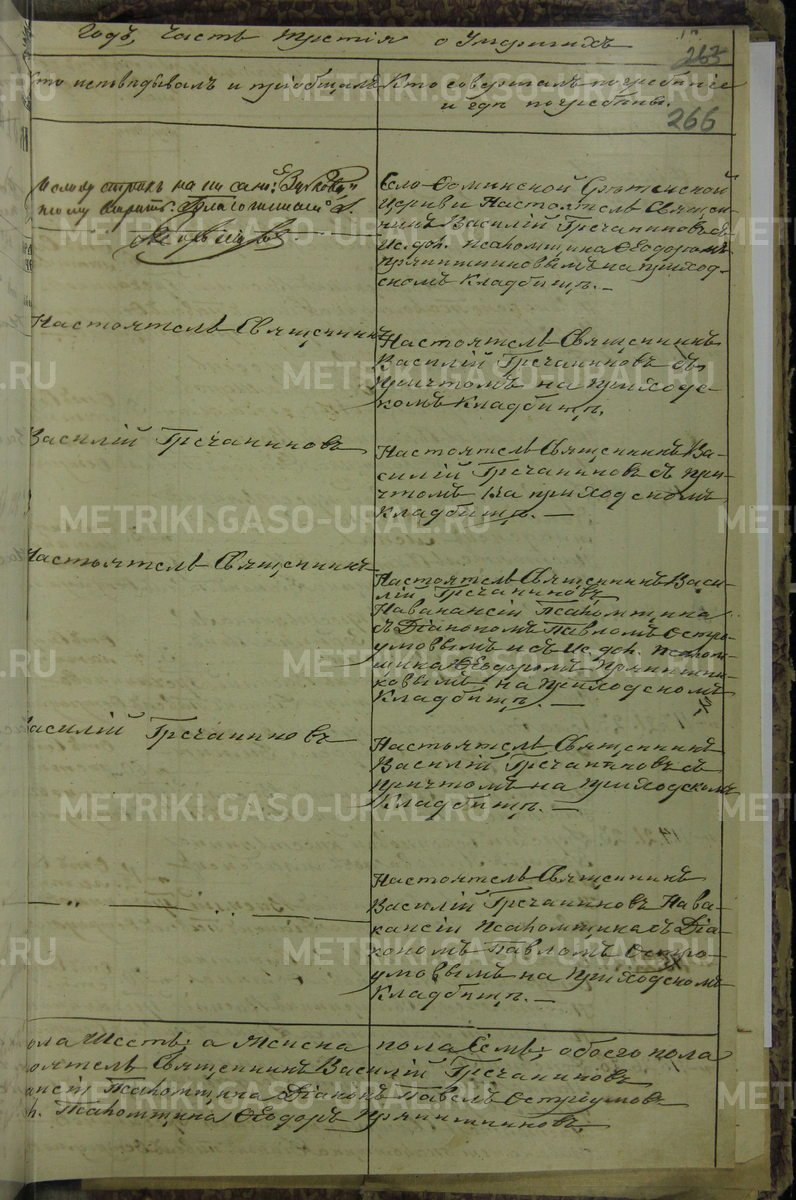 Годъ, Часть третія о Умершихъ
265
266
Кто исповѣдывалъ и пріобщалъ
Кто совершалъ погребеніе
и гдѣ погребены.
Село-Фоминской Срѣтенской
Церкви Настоятель Священ-
никъ Василій Гречаниновъ съ
Ис. дол. псаломщика Ѳеодоромъ
Пряпишниковымъ на приход-
скомъ Кладбищѣ.—
Настоятель Священникъ
Настоятель Священникъ
Василій Гречаниновъ съ
Причтомъ на приходс-
комъ Кладбищѣ.
Василій Гречаниновъ
Настоятель Священникъ Ва-
силій Гречаниновъ съ при-
чтомъ на приходскомъ
Кладбищѣ.—
Настоятель Священникъ
Настоятель Священникъ Васи-
лій Гречаниновъ
На вакансіи Псаломщика
съ Діакономъ Павломъ Остро-
умовымъ и съ Ис. дол. псалом-
щика Ѳеодоромъ Пряпишни-
ковымъ на приходскомъ
Кладбищѣ.—
Василій Гречаниновъ
Настоятель Священникъ
Василій Гречаниновъ съ
Причтомъ на приходскомъ
Кладбищѣ.—
Настоятель Священникъ
Василій Гречаниновъ На ва-
кансіи Псаломщика съ Діа-
кономъ Павломъ Остро-
умовымъ на приходскомъ
Кладбищѣ.—
пола Шесть; а Женска пола Семь; обоего пола
Настоятель Священникъ Василій Гречаниновъ
вакансіи Псаломщика Діаконъ Павелъ Остроумовъ
дол. Псаломщика Ѳеодоръ Пряпишниковъ
METRIKI.GASO-URAL.RU